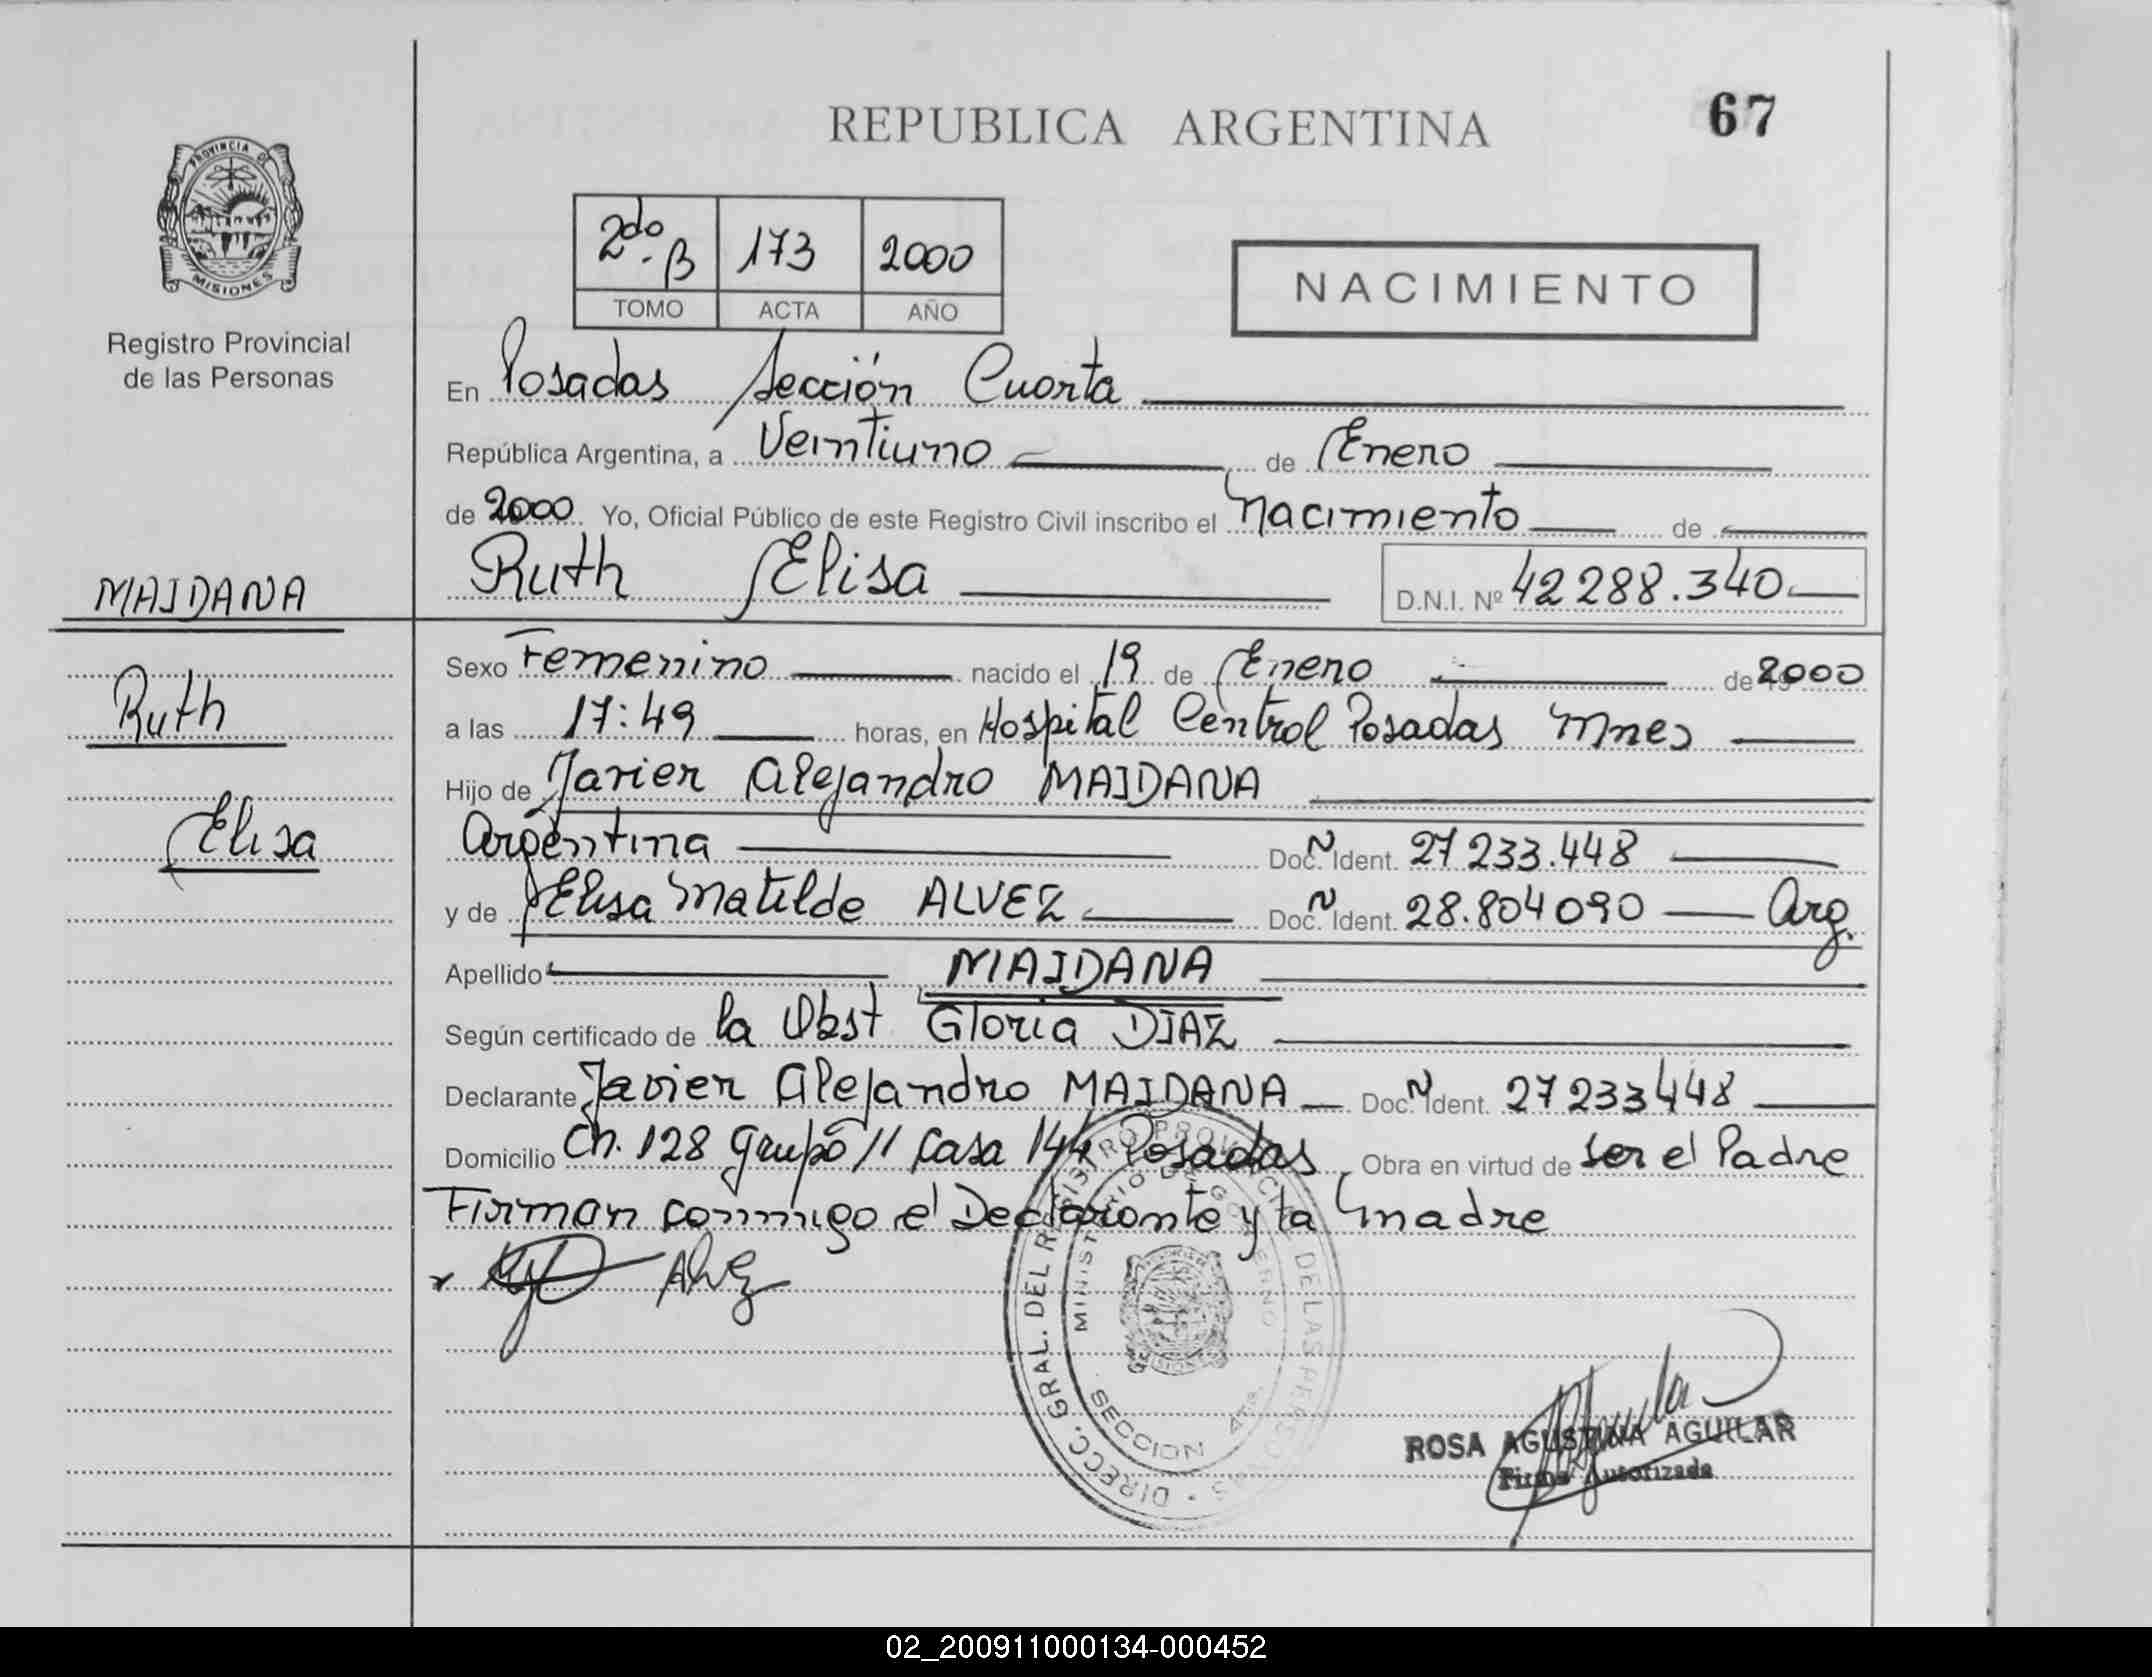 REPUBLICA ARGENTINA
67
PROVINCIA DE
MISIONES
Registro Provincial
de las Personas
2do - B 173 2000
TOMO ACTA AÑO
NACIMIENTO
En Posadas Sección Cuarta
República Argentina, a Veintiuno de Enero
de 2000 Yo, Oficial Público de este Registro Civil inscribo el Nacimiento de
MAIDANA
Ruth Elisa D.N.I. Nº 42288.340
Sexo Femenino nacido el 19 de Enero de 2000
Ruth
a las 17:49 horas, en Hospital Central Posadas Mnes
Hijo de Javier Alejandro MAIDANA
Elisa
Argentina Doc. N Ident. 27233.448
y de Elisa Matilde ALVEZ Doc. N Ident. 28.804090 Arg.
Apellido MAIDANA
Según certificado de la Obst Gloria DIAZ
Declarante Javier Alejandro MAIDANA Doc. N Ident. 27233448
Domicilio Ch. 128 Grupo 11 Casa 144 Posadas Obra en virtud de ser el Padre
Firman conmigo el Declarante y la Madre
Alvez
DIRECC. GRAL. DEL REGISTRO PROVINCIAL DE LAS PERSONAS
MINISTERIO DE GOBIERNO
SECCION 4ta.
MISIONES
ROSA AGUSTINA AGUILAR
Firma Autorizada
02_200911000134-000452